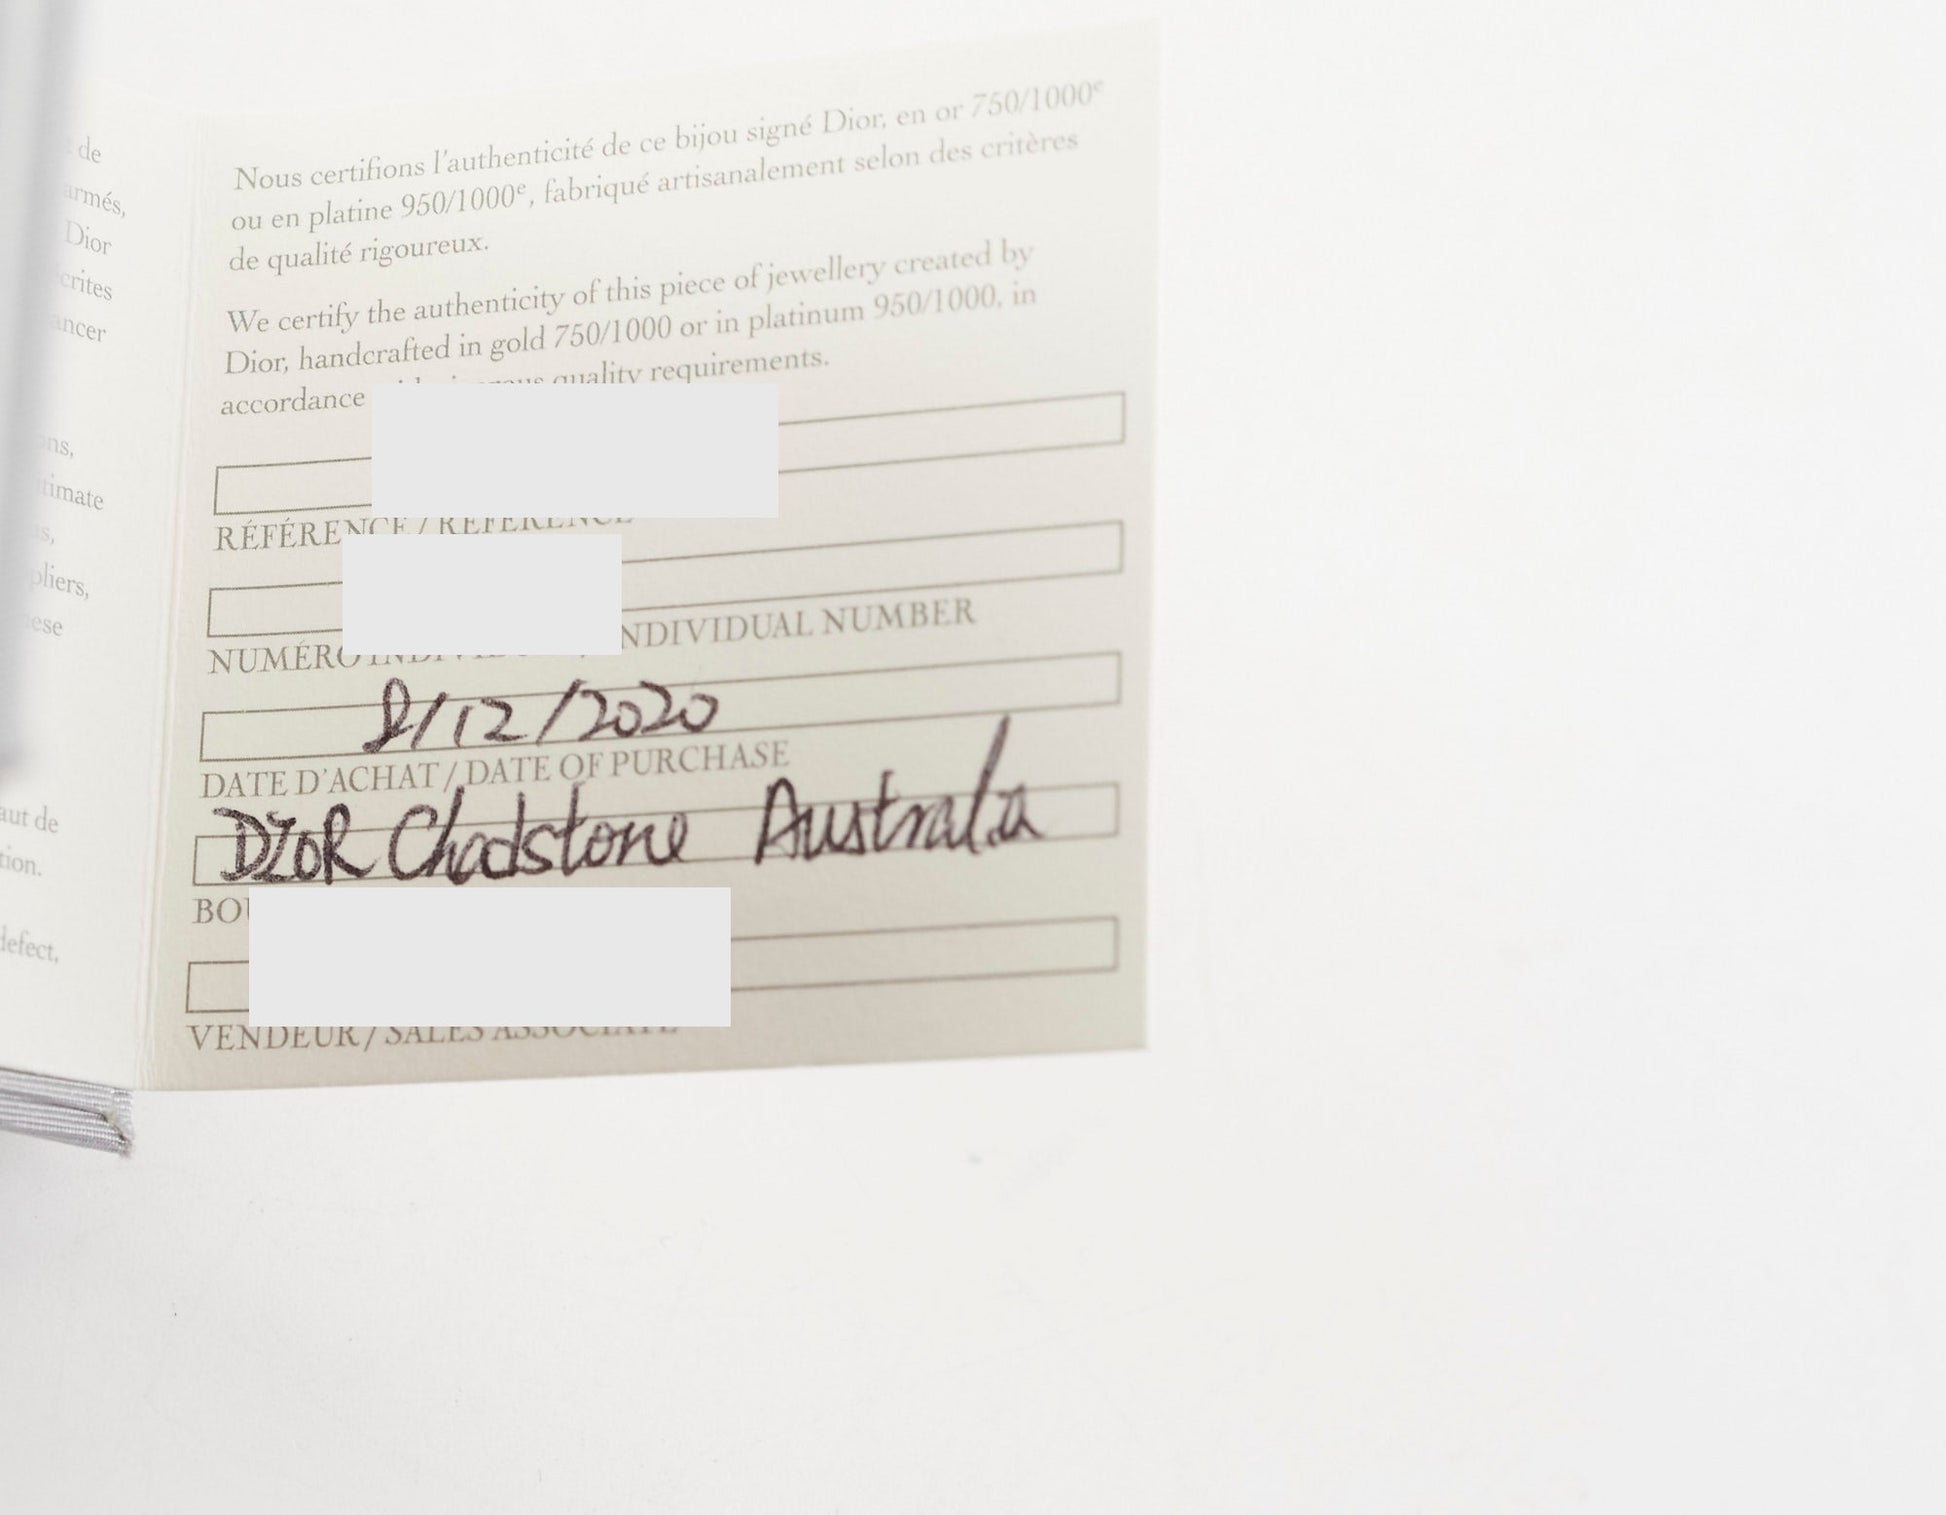 de
armés,
Dior
crites
ancer
ns,
timate
s,
pliers,
ese
aut de
tion.
defect,
Nous certifions l'authenticité de ce bijou signé Dior, en or 750/1000ᵉ
ou en platine 950/1000ᵉ, fabriqué artisanalement selon des critères
de qualité rigoureux.
We certify the authenticity of this piece of jewellery created by
Dior, handcrafted in gold 750/1000 or in platinum 950/1000, in
accordance quality requirements.
RÉFÉRENCE / REFERENCE
NUMÉRO INDIVIDUAL NUMBER
8/12/2020
DATE D'ACHAT / DATE OF PURCHASE
DIOR Chadstone Australia
BOU
VENDEUR / SALES ASSOCIATE